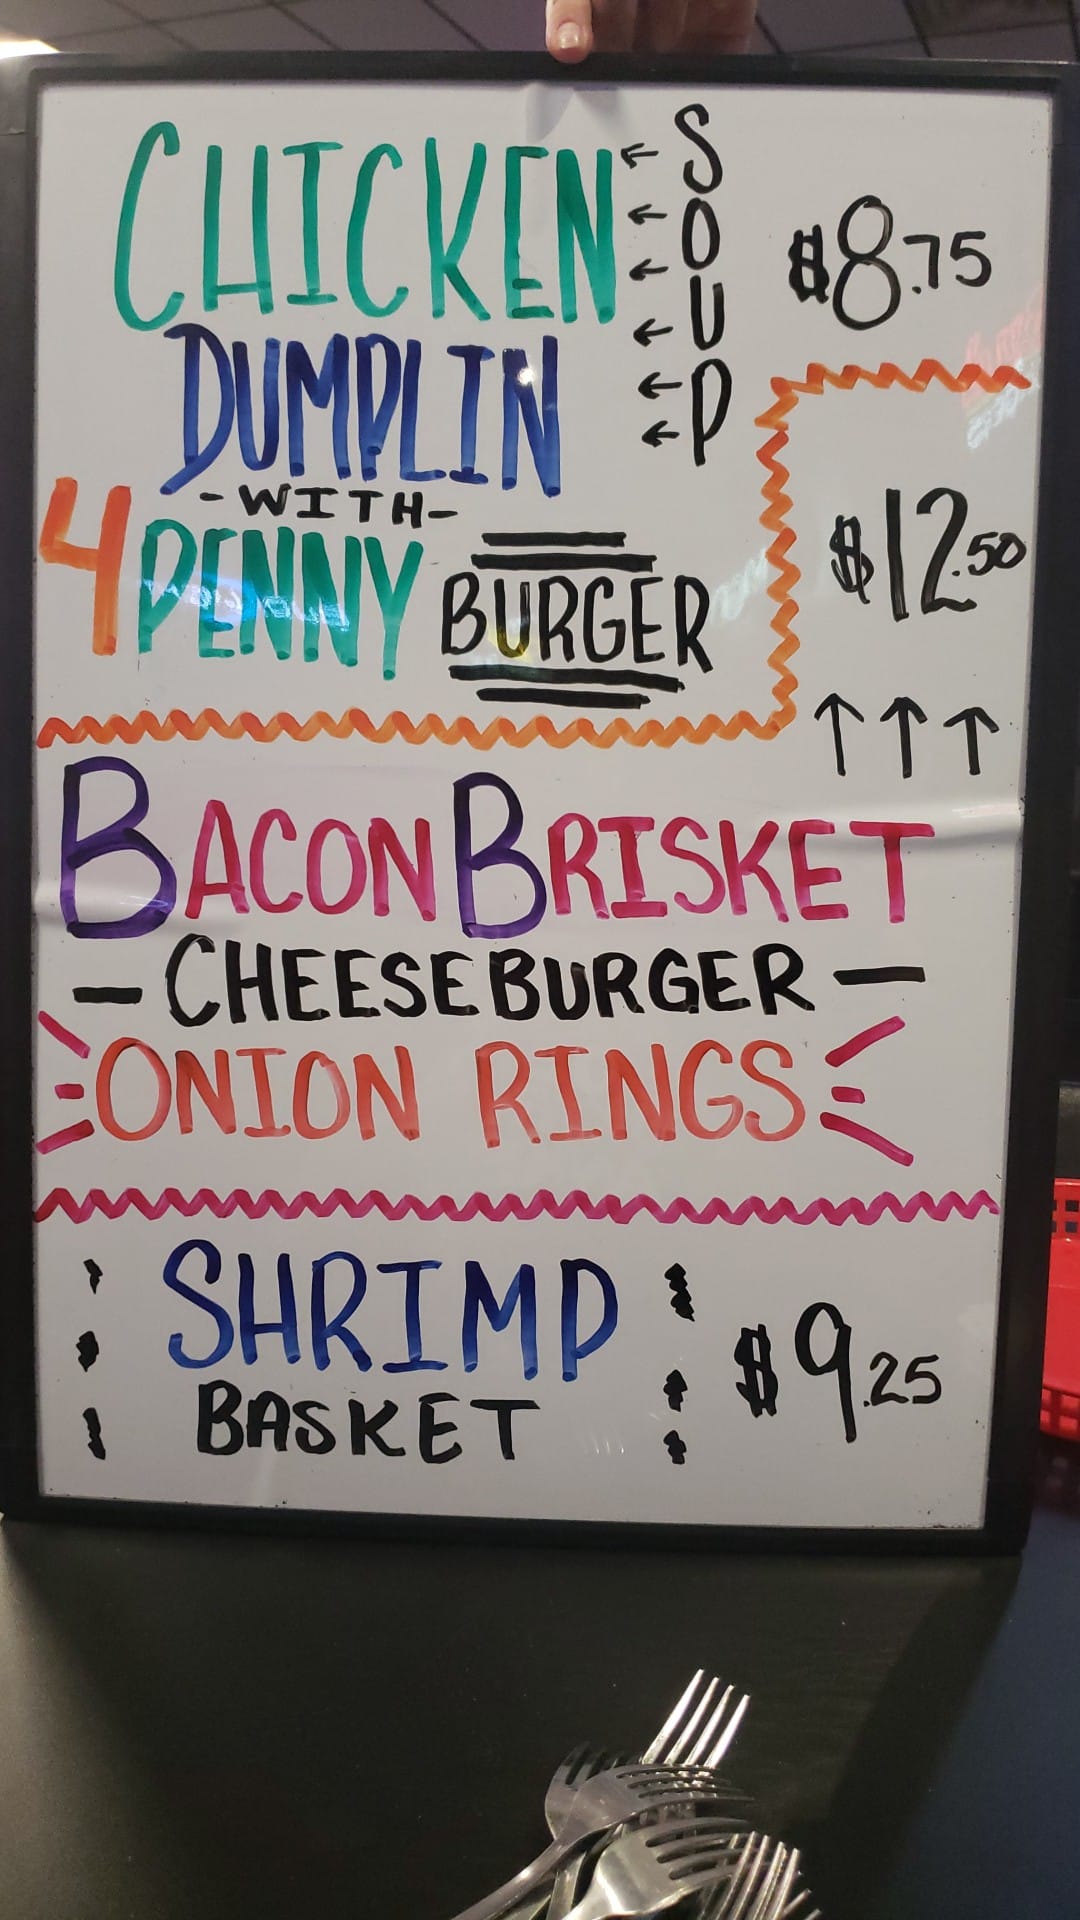 CHICKEN
SOUP
$8.75
DUMPLIN
-WITH-
4 PENNY BURGER
$12.50
BACON BRISKET
- CHEESEBURGER -
ONION RINGS
SHRIMP
BASKET
$9.25